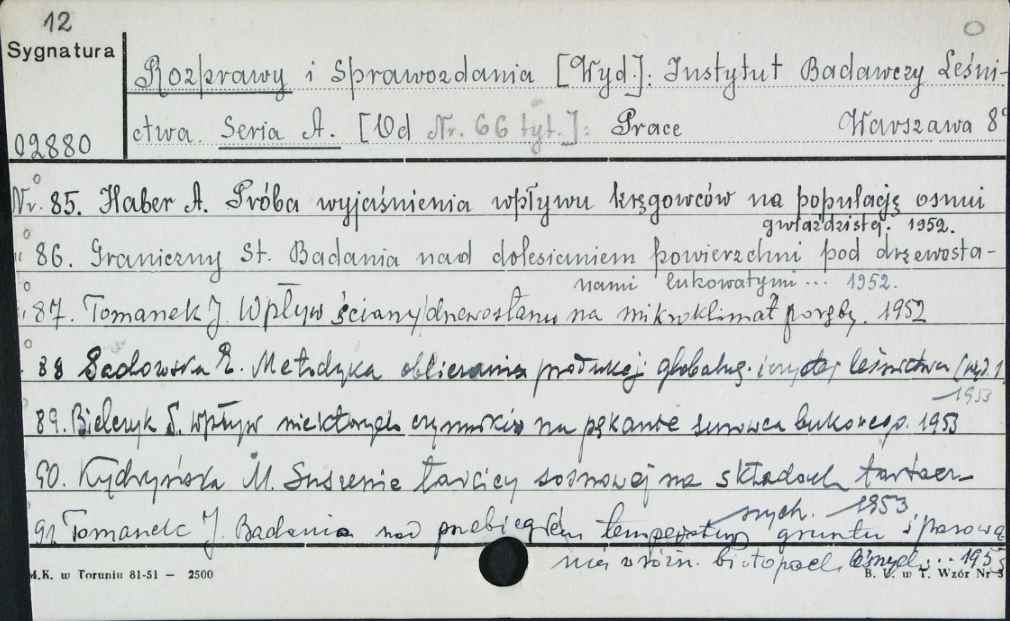 12
Sygnatura
Rozprawy i Sprawozdania [Wyd.]: Instytut Badawczy Leśni-
02880 ctwa. Seria A. [Od Nr. 66 tyt.]: Prace Warszawa 8°
Nr. 85. Haber A. Próba wyjaśnienia wpływu kręgowców na populację osnui
gwiaździstej. 1952.
" 86. Graniczny St. Badania nad dolesieniem powierzchni pod drzewosta-
nami bukowatymi... 1952.
" 87. Tomanek J. Wpływ ściany drzewostanu na mikroklimat poręby. 1952
88 Sadowska E. Metodyka obliczania produkcji globalnej i czystej leśnictwa
1953
89. Bielczyk S. Wpływ niektórych czynników na pękanie surowca bukowego. 1953
90. Kędzyńska M. Suszenie tarcicy sosnowej na składach tartacz-
nych. 1953
91. Tomanek J. Badania nad przebiegiem temperatury gruntu i parowa
nia w różn. biotopach leśnych... 1953
M.K. w Toruniu 81-51 — 2500 B. U. w T. Wzór Nr 3